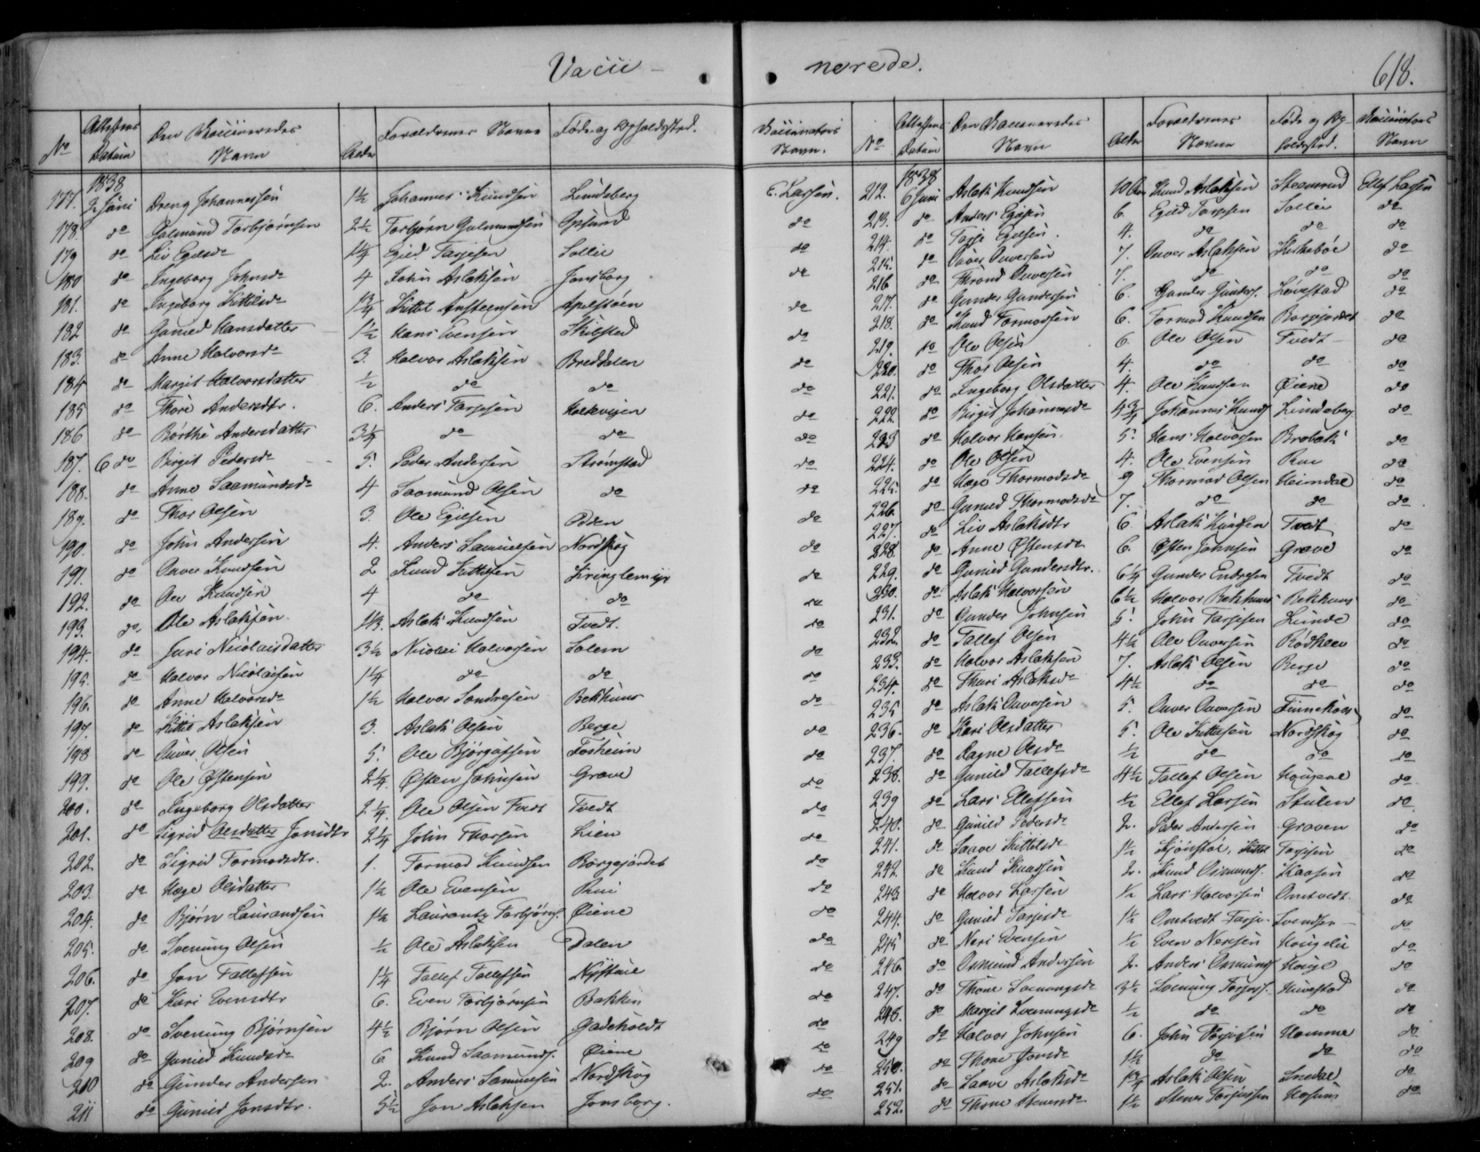 Vacci- nerede. 618.
No Attestens Datum Den Vaccineredes Navn Alder Forældrenes Navne Føde og Opholdssted. Vaccinators Navn.
1838
177. 2 Juni Dreng Johannessen 1½ Johannes Knudsen Lindeberg E. Larsen.
178. do Galmund Torbjørnsen 2½ Torbjørn Galmundsen do
179 do Liv Egilsdr 1¼ Egild Tarjesen Sollie do
180 do Ingeborg Johnsdr 4 John Aslaksen Jonsborg do
181. do Ingeborg Kittilsdr 1¾ Kittel do
182 do Gunild Hansdatter 1½ Hans Evensen Skilstad do
183. do Anne Halvorsdr 3. Halvor Aslaksen Breddalen do
184 do Margit Halvorsdatter ½ do do do
185 do Thore Andersdtr. 6. Anders Tarjesen do
186 do Børthe Andersdatter 3¼ do do do
187. 6 do Birgit Pedersdr 5. Peder Andersen Strømstad do
188. do Anne Saamundsdr 4 Saamund Olsen do do
189. do Thor Olsen 3. Ole Egilsen do
190. do John Andersen 4. Anders Samuelsen Nordskog do
191. do Onver Knudsen 2 Knud Kittilsen Kringlemyr do
192. do Knudsen 4 do do
193. do Ole Aslaksen Aslak Knudsen Tvedt. do
194. do Juri Nicolaisdatter 3½ Nicolai Halvorsen Solem do
195. do Halvor Nicolaisen 1¼ do do do
196. do Anne Halvorsdr 1½ Halvor Sondresen Bekhuus do
197. do Kittel Aslaksen 3. Aslak Olsen Berge do
198 do Onver Olsen 5. Ole Bjørgufsen Forheim do
199. do Ole Østensen 2¼ Østen Johnsen Grave do
200. do Ingeborg Olsdatter 2¼ Ole Olsen Tvedt Tvedt do
201. do Sigrid Olsdatter Jonsdtr 2¼ John Thorsen Lien do
202. do Sigrid Tormodsdtr. 1. Tormod Knudsen Borgejordet do
203. do Hæge Olsdatter 1½ Ole Evensen Rui do
204. do Bjørn Laurandsen 1½ Laurantz Torbjørns. Øiene do
205. do Svenung Olsen ½ Ole Aslaksen Dalen do
206. do Jon Tallefsen 1¼ Tallef Tallefsen do
207. do Kari Evensdtr 6. Even Torbjørnsen Bakken do
208. do Svenung Bjørnsen 4½ Bjørn Olsen Gadeholdt do
209 do Gunild Knudsdr 6 Knud Saamunds. Øiene do
210 do Gunder Andersen 2. Anders Samuelsen Nordskog do
211 do Gunild Jonsdtr. 5½ Jon Aslaksen Jonsborg. do
No Attestens Datum Den Vaccineredes Navn Alder Forældrenes Navne Føde og Opholdssted. Vaccinators Navn
1838
212. 6 Juni Aslak Knudsen Knud Aslaksen Ellef Larsen
213. do Anders Egilsen 6. Egild Tarjesen Sollie do
214. do Tarje Egilsen. 4. do do do
215. do Onver Onversen 7. Onver Aslaksen Kirkebøe do
216 do Thrond Onversen 7. do do do
217. do Gunder Gundersen 6. Gunder Gunders. Lovestad do
218. do Knud Tormodsen 6. Tormod Knudsen Borgejordet do
219. do Ole Olsen 6 Ole Olsen Tvedt do
220. do Thor Olsen 4. do do do
221. do Ingeborg Olsdatter 4. Ole Knudsen Øiene do
222. do Birgit Johannesdr 4¾ Johannes Knuds. Lindeberg do
223 do Halvor Hansen. 5. Hans Halvorsen Brobak do
224. do Ole Olsen 4. Ole Evensen Rui do
225. do Hæge Thormodsdr 9 Thormod Olsen Heimdal do
226. do Gunild Thormodsdr 7. do do do
227. do Liv Aslaksdtr 6 Aslak Knudsen Tvedt do
228. do Anne Østensdr 6. Østen Johnsen Grave do
229. do Gunild Gundersdtr. 6¼ Gunder Endresen Tvedt do
230. do Aslak Halvorsen 6½ Halvor Bekhuus Bekhuus do
231. do Gunder Johnsen 5. John Tarjesen Lunde do
232. do Tallef Olsen 4½ Ole Onversen do
233. do Halvor Aslaksen 7. Aslak Olsen Berge do
234. do Thuri Aslaksdr 4½ do do do
235 do Aslak Onversen 5. Onver Onversen do
236. do Kari Olsdatter 5. Ole Kittilsen Nordskog do
237. do Ragne Olsdr ½ do do do
238. do Gunild Tallefsdr 4½ Tallef Olsen do
239 do Lars Ellefsen ½ Ellef Larsen Stulen do
240. do Gunild Pedersdr 2. Peder Andersen Graven do
241. do Saave Kittilsdr 1½ Kittel do
242 do Knud Knudsen 2. Knud Osmunds. Kaasen do
243 do Halvor Larsen ½ Lars Halvorsen Omtvedt do
244. do Gunild Tarjesdr 1½ Omtvedt Tarje Svendsen do
245 do Neri Evensen ½ Even Nersen do
246 do Osmund Andersen 2. Anders Osmunds. Hauge do
247. do Thone Svenungsdr 3½ Svenung do
248. do Margit Svenungsdr ½ do do do
249 do Halvor Johnsen 6. John Hamme do
250. do Thone Jonsdr 1½ do do do
251. do Saave Aslaksdr 1¾ Aslak Olsen do
252. do Thone 1½ do